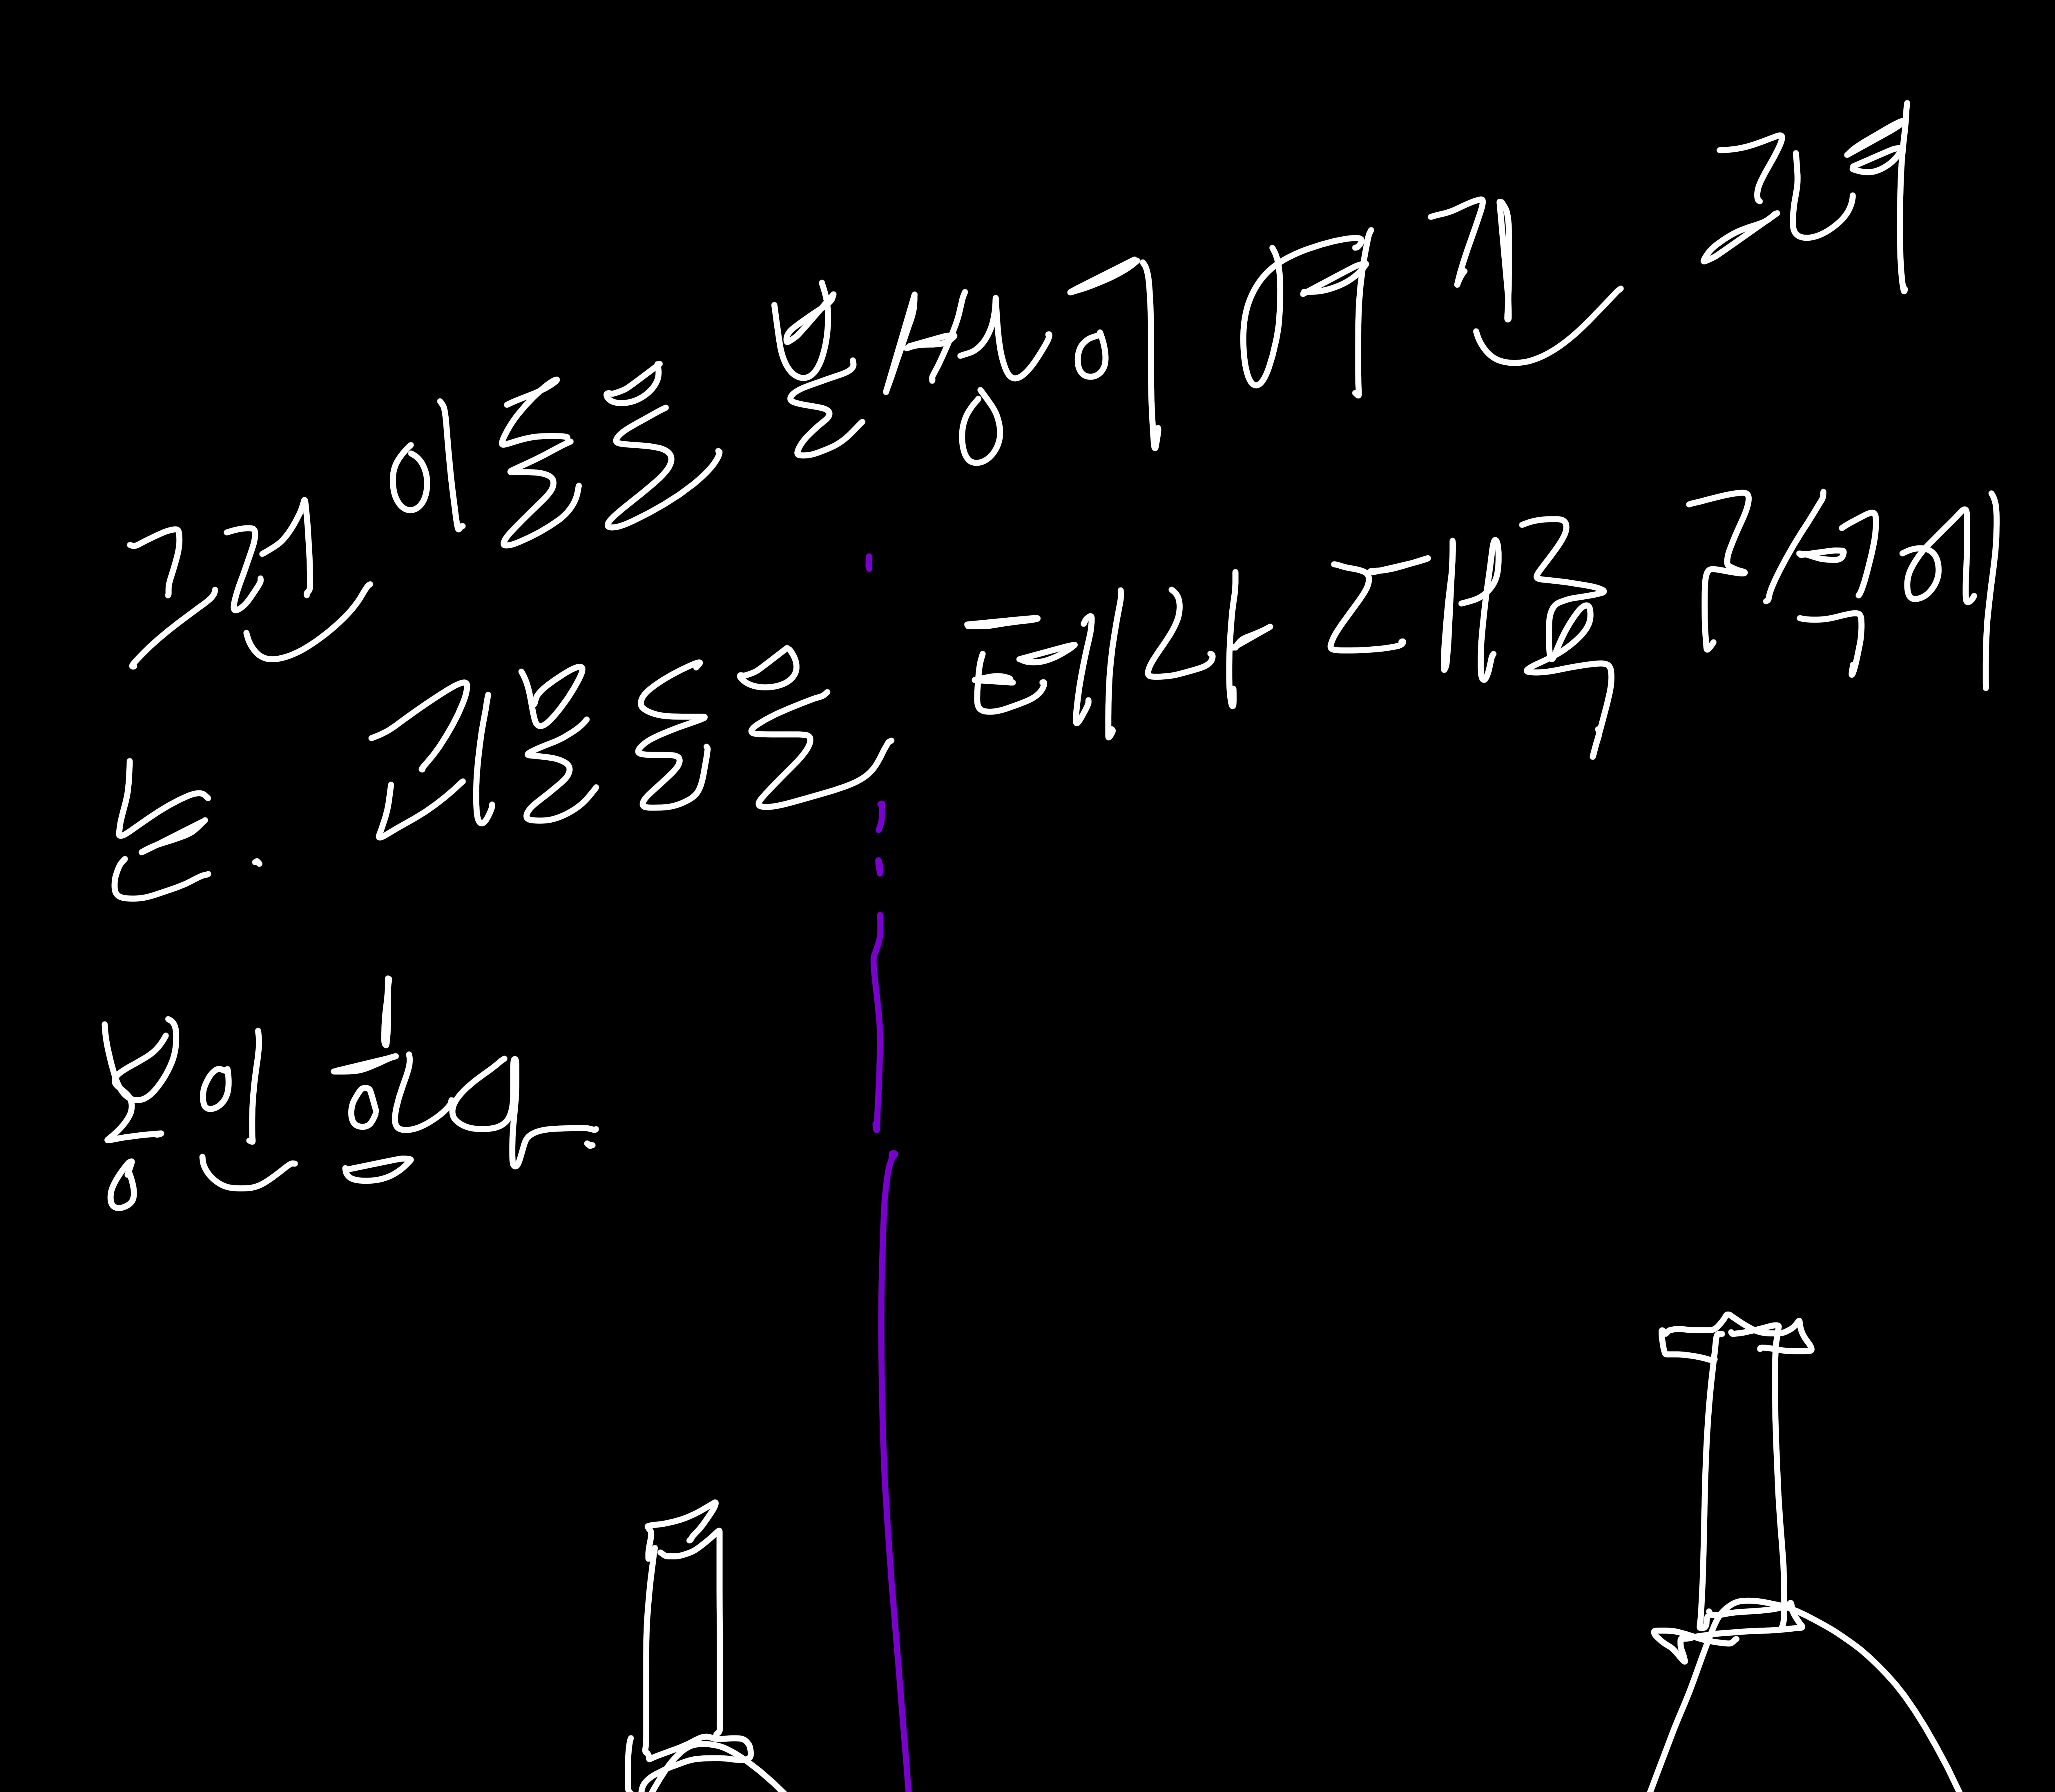 그런 이들을 불쌍히 여긴 그녀
는. 괴물들을 트라 스 대륙 구석에
봉인 하였다.